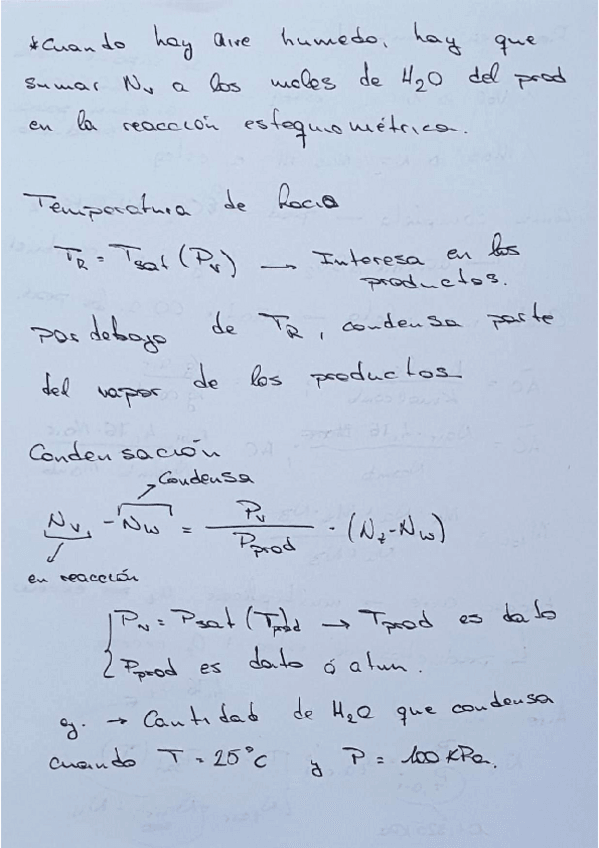 *Cuando hay aire humedo, hay que
sumar Nv a los moles de H2O del prod
en la reacción estequiométrica.
Temperatura de Rocio
TR = Tsat (Pv) → Interesa en los
productos.
por debajo de TR, condensa parte
del vapor de los productos
Condensación
Condensa
Nv - Nw = Pv / Pprod · (Nt - Nw)
en reacción
Pv = Psat (Tprod) → Tprod es dato
Pprod es dato ó atm.
ej. → Cantidad de H2O que condensa
cuando T = 25°C y P = 100 kPa.